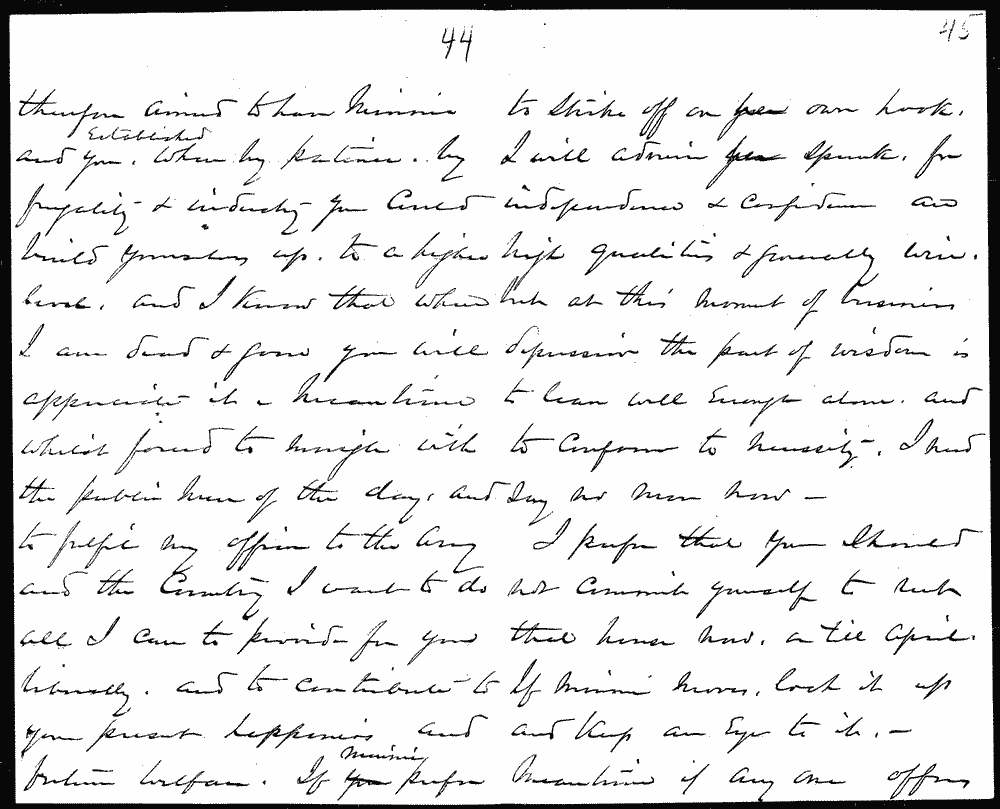 44
therefore aimed to have Minnie
Established
and you. when by patience. by
frugality & industry you could
build yourselves up. to a higher
level. and I know that when
I am dead & gone you will
appreciate it - Meantime
whilst forced to mingle with
the public men of the day, and
to fulfil my office to the Army
and the Country I want to do
all I can to provide for you
liberally. and to contribute to
your present happiness and
Minnie
future welfare. If you prefer
45
to strike off on her own hook.
I will admire her spunk. for
independence & confidence are
high qualities & generally win.
but at this moment of business
depression the part of wisdom is
to leave well enough alone. and
to conform to necessity. I need
say no more now -
I prefer that you should
not commit yourself to rent
that house now. or till April.
If Minnie moves, lock it up
and keep an Eye to it. -
Meantime if any one offers